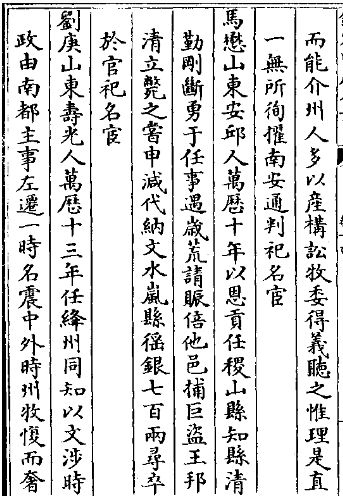 而能介州人多以産構訟牧委得義聽之惟理是直
一無所徇擢南安通判祀名宦
馬懋山東安邱人萬歷十年以恩貢任稷山縣知縣清
勤剛斷勇于任事遇歲荒請賑倍他邑捕巨盜王邦
清立斃之嘗申減代納文水嵐縣徭銀七百兩尋卒
於官祀名宦
劉庚山東壽光人萬歷十三年任絳州同知以文涉時
政由南都主事左遷一時名震中外時州牧愎而奢